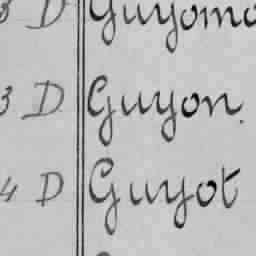 D Guyomo
3 D Guyon.
4 D Guyot